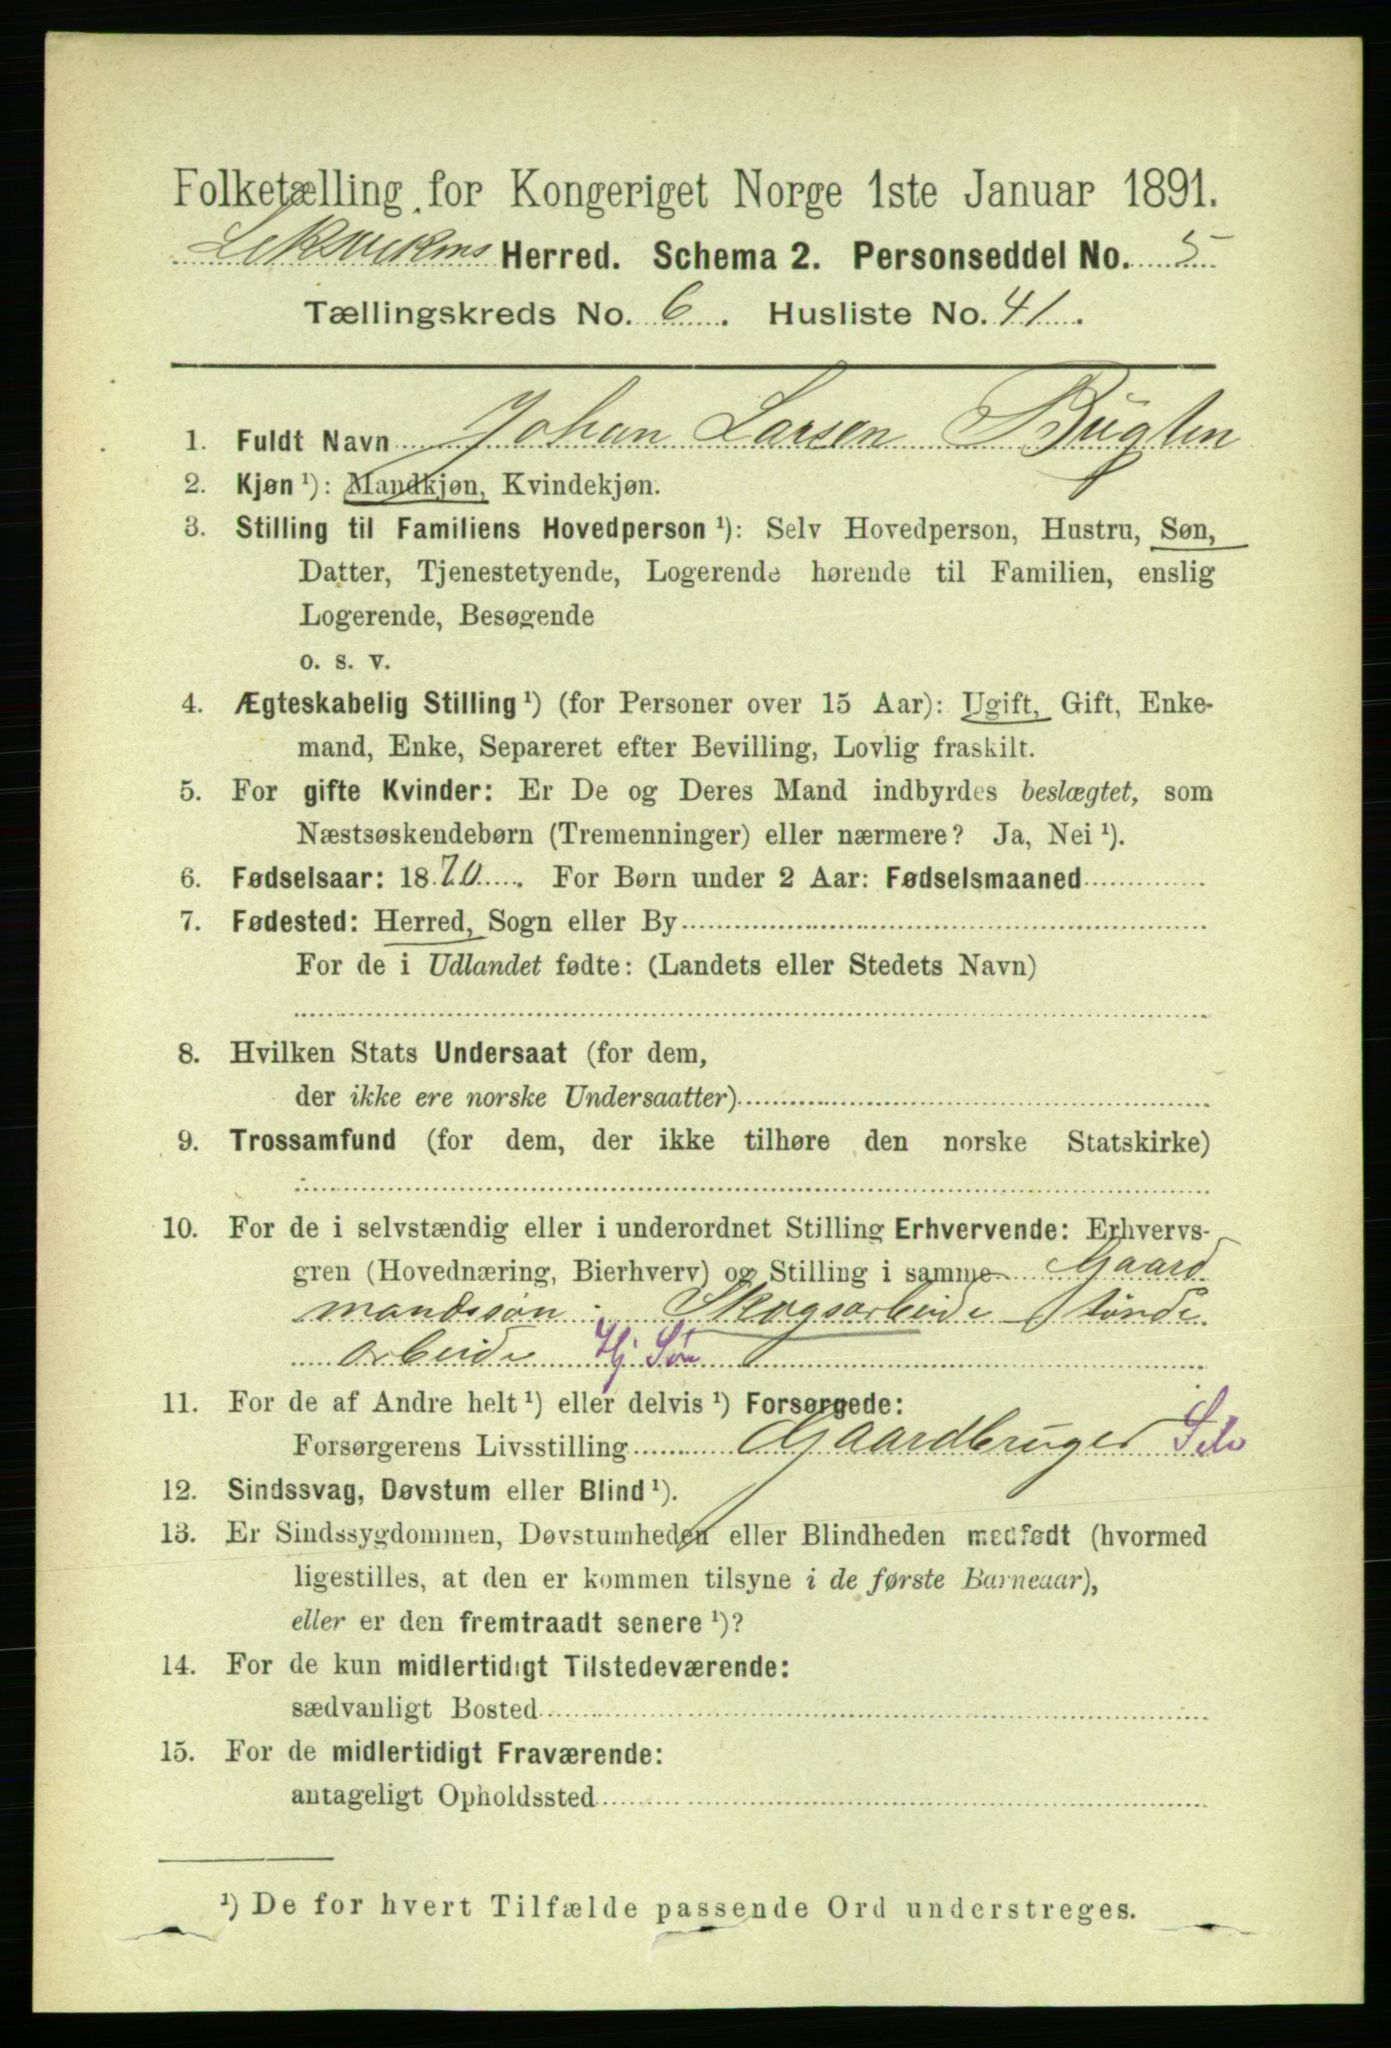 Folketælling for Kongeriget Norge 1ste Januar 1891.
Leksvikens Herred. Schema 2. Personseddel No. 5
Tællingskreds No. 6. Husliste No. 41.
1. Fuldt Navn Johan Larsen Bugten
2. Kjøn ¹): Mandkjøn, Kvindekjøn.
3. Stilling til Familiens Hovedperson ¹): Selv Hovedperson, Hustru, Søn,
Datter, Tjenestetyende, Logerende hørende til Familien, enslig
Logerende, Besøgende
o. s. v.
4. Ægteskabelig Stilling ¹) (for Personer over 15 Aar): Ugift, Gift, Enke-
mand, Enke, Separeret efter Bevilling, Lovlig fraskilt.
5. For gifte Kvinder: Er De og Deres Mand indbyrdes beslægtet, som
Næstsøskendebørn (Tremenninger) eller nærmere? Ja, Nei ¹).
6. Fødselsaar: 1870. For Børn under 2 Aar: Fødselsmaaned
7. Fødested: Herred, Sogn eller By
For de i Udlandet fødte: (Landets eller Stedets Navn)
8. Hvilken Stats Undersaat (for dem,
der ikke ere norske Undersaatter)
9. Trossamfund (for dem, der ikke tilhøre den norske Statskirke)
10. For de i selvstændig eller i underordnet Stilling Erhvervende: Erhvervs-
gren (Hovednæring, Bierhverv) og Stilling i samme Gaard
mandssøn; Skogsarbeide
arbeide Hj Søn
11. For de af Andre helt ¹) eller delvis ¹) Forsørgede:
Forsørgerens Livsstilling Gaardbruger Selv
12. Sindssvag, Døvstum eller Blind ¹).
13. Er Sindssygdommen, Døvstumheden eller Blindheden medfødt (hvormed
ligestilles, at den er kommen tilsyne i de første Barneaar),
eller er den fremtraadt senere ¹)?
14. For de kun midlertidigt Tilstedeværende:
sædvanligt Bosted
15. For de midlertidigt Fraværende:
antageligt Opholdssted
¹) De for hvert Tilfælde passende Ord understreges.